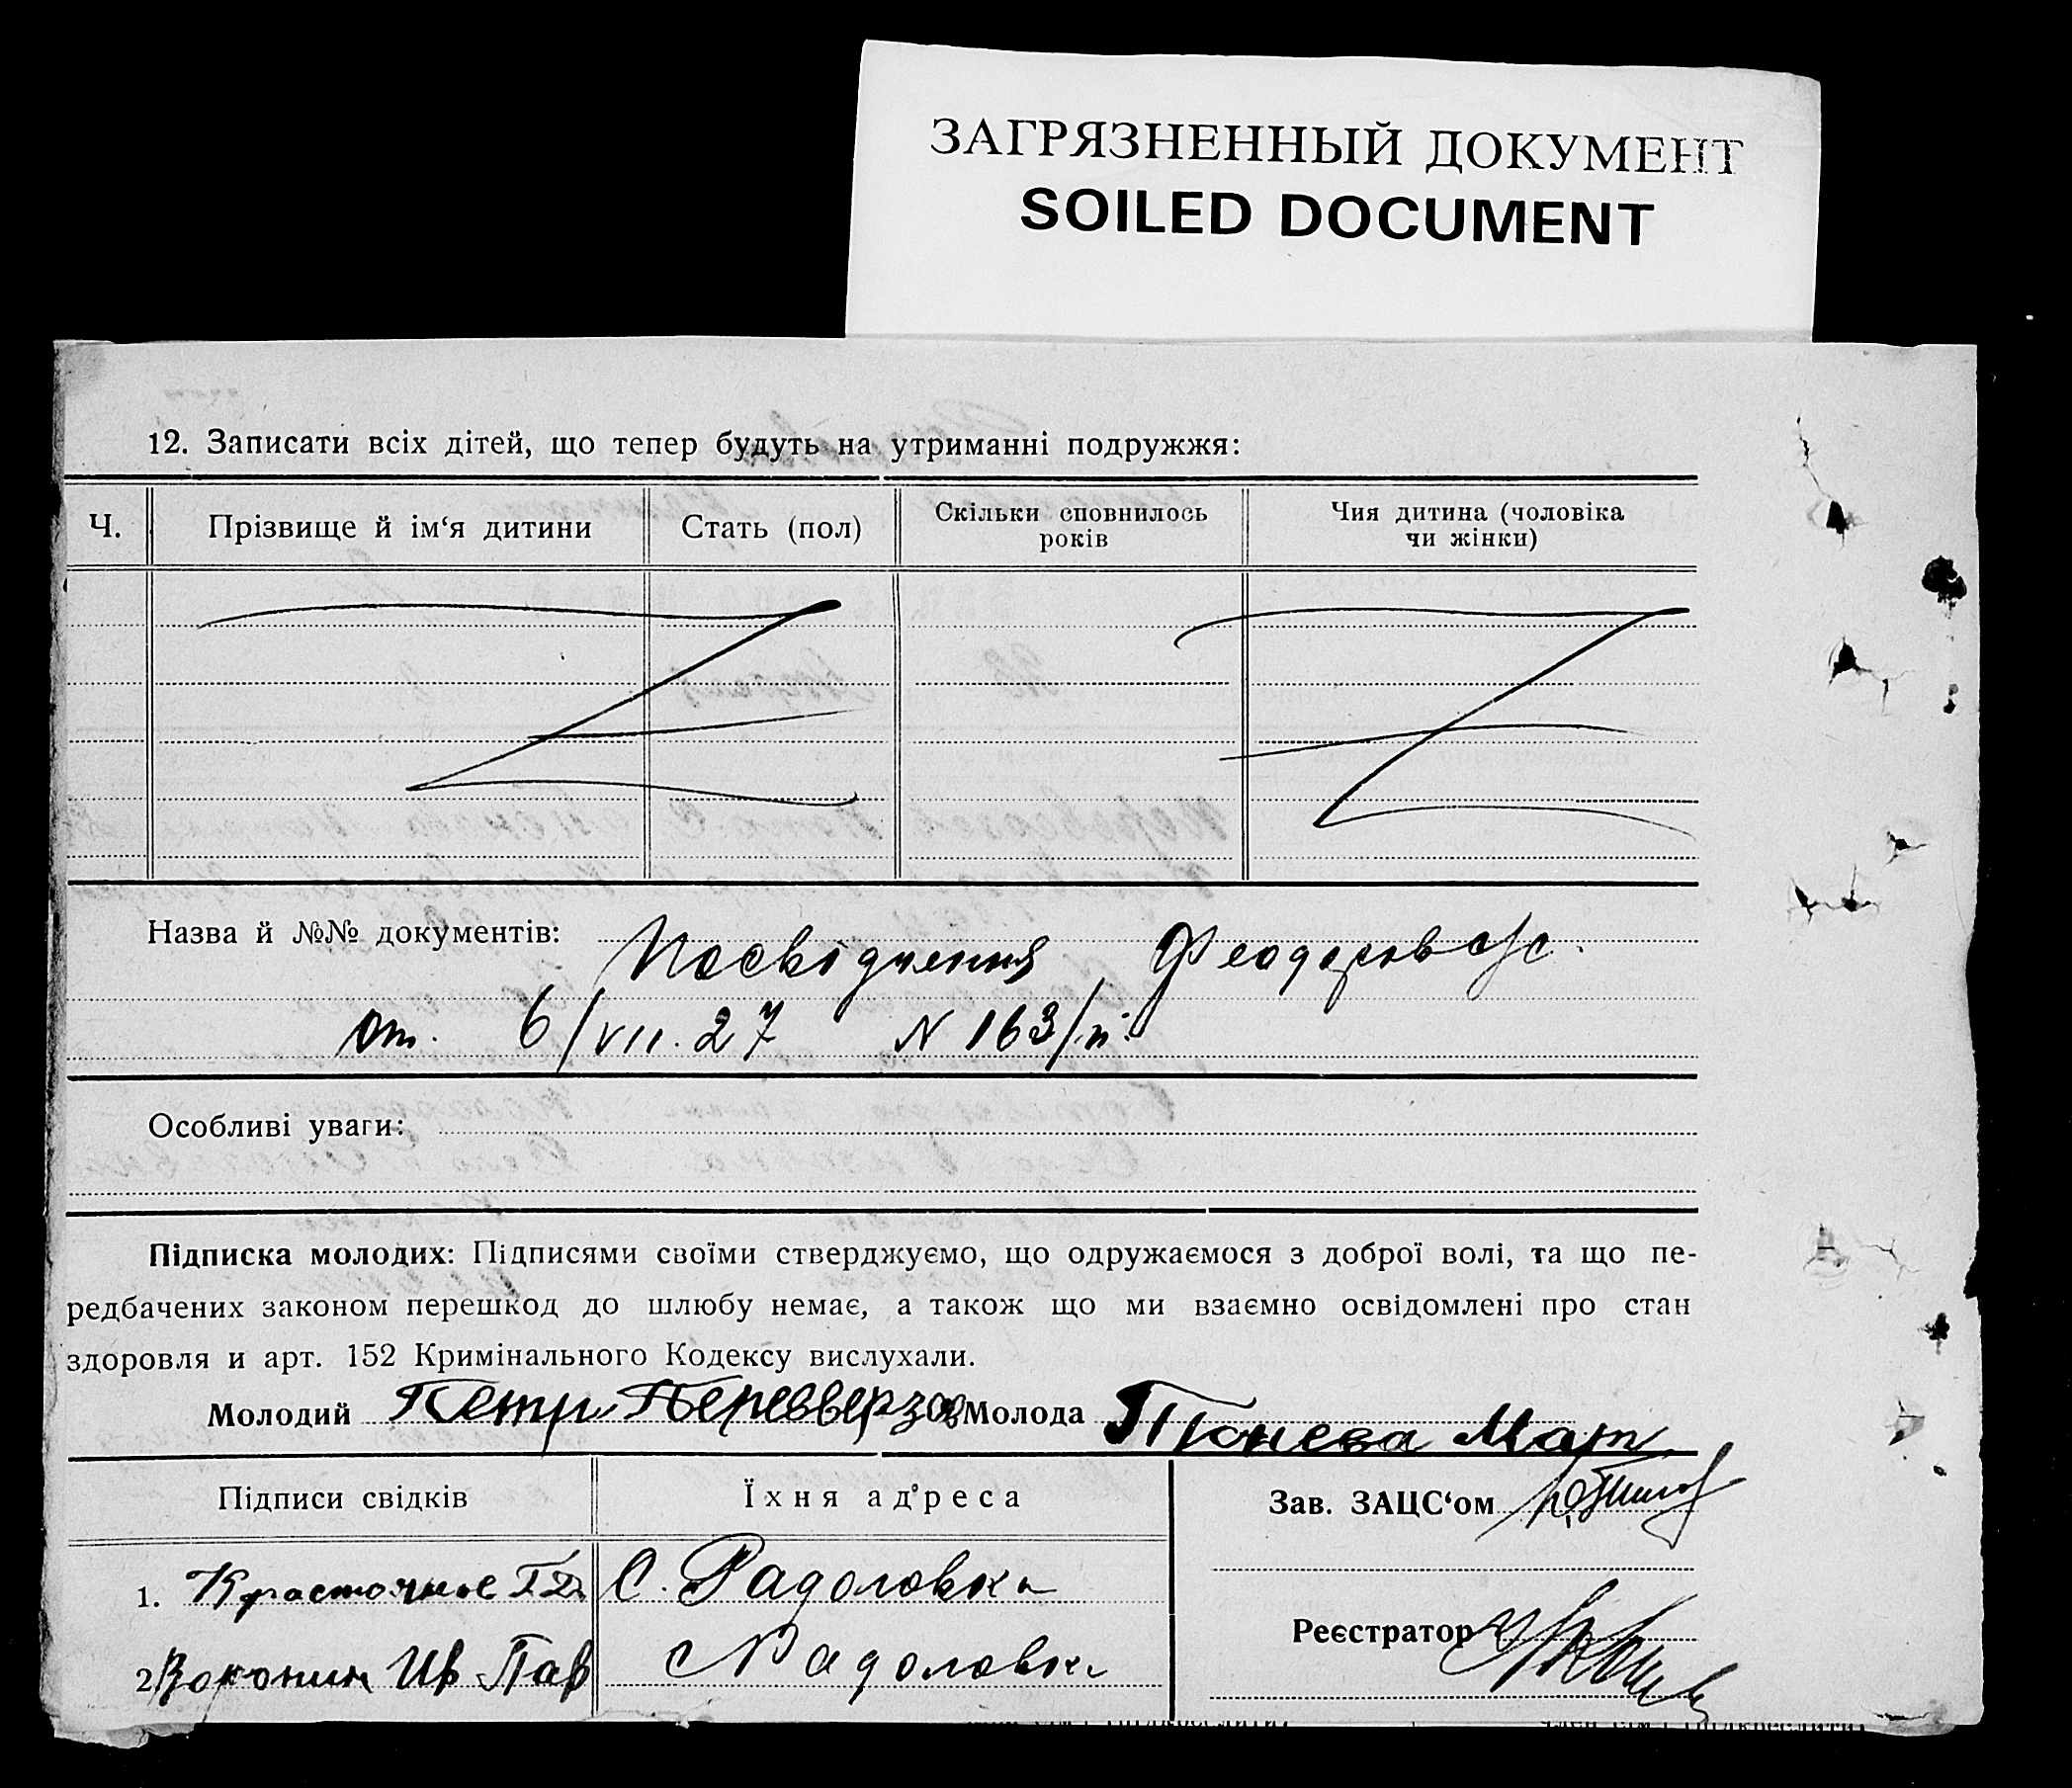 ЗАГРЯЗНЕННЫЙ ДОКУМЕНТ
SOILED DOCUMENT
12. Записати всіх дітей, що тепер будуть на утриманні подружжя:
Ч.
Прізвище й ім‘я дитини
Стать (пол)
Скільки сповнилось
років
Чия дитина (чоловіка
чи жінки)
Назва й №№ документів: Посвідчення
от. 6/VII. 27 N 163/п.
Особливі уваги:
Підписка молодих: Підписями своїми стверджуємо, що одружаємося з доброї волі, та що пе-
редбачених законом перешкод до шлюбу немає, а також що ми взаємно освідомлені про стан
здоровля и арт. 152 Кримінального Кодексу вислухали.
Молодий Петр Молода Тюнева Мат
Підписи свідків
Їхня адреса
Зав. ЗАЦС‘ом
1. С. Радоловка
Реєстратор
2 Воронин Ив Пав с Радоловка